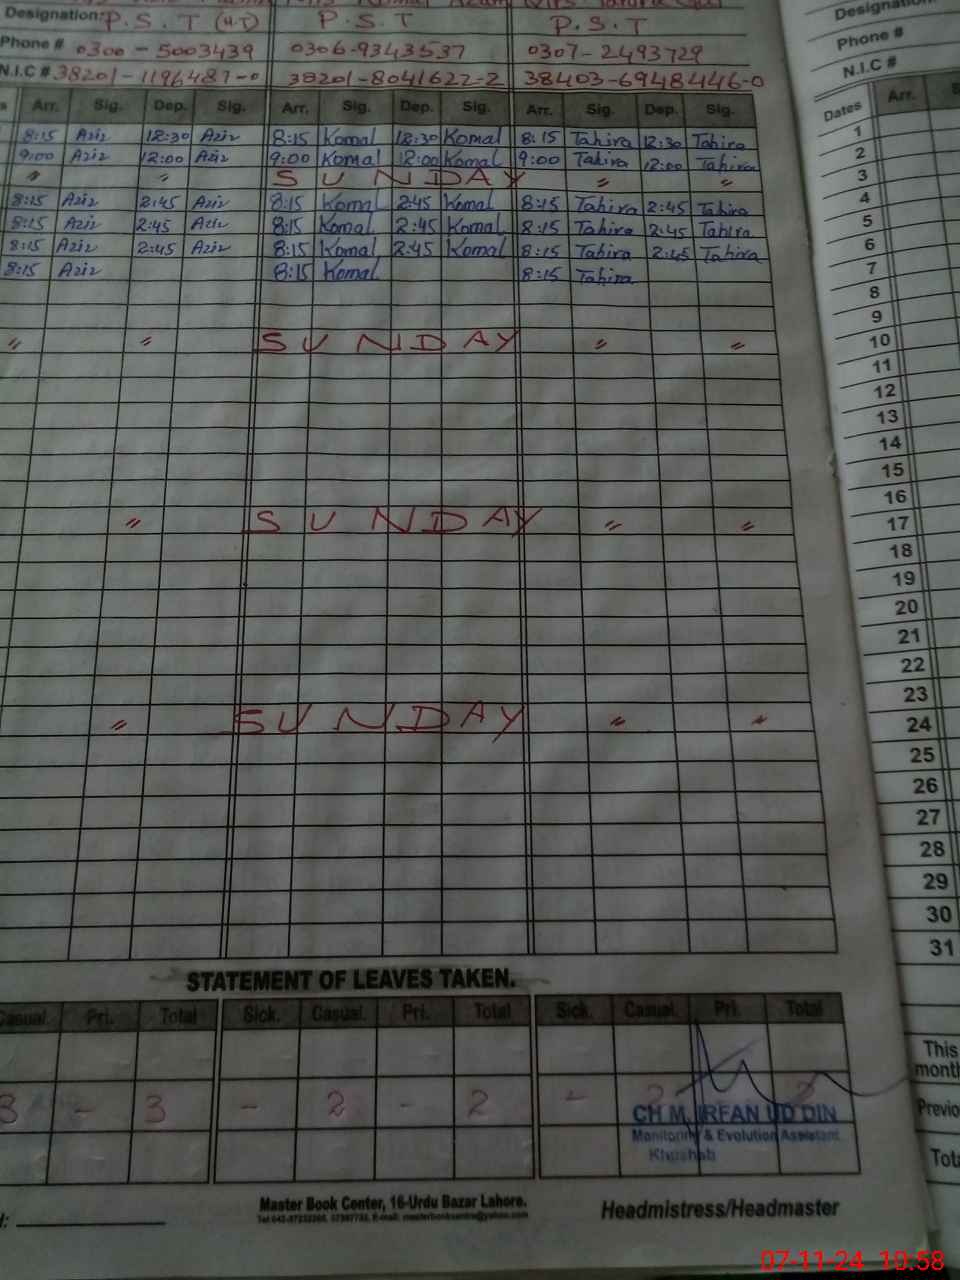 Designation: P.S.T (H.T) P.S.T P.S.T
Phone # 0300-5003439 0306-9343537 0307-2493729
N.I.C # 38201-1196487-0 38201-8041622-2 38403-6948446-0
Arr. Sig. Dep. Sig. Arr. Sig. Dep. Sig. Arr. Sig. Dep. Sig.
8:15 Aziz 12:30 Aziz 8:15 Komal 12:30 Komal 8:15 Tahira 12:30 Tahira
9:00 Aziz 12:00 Aziz 9:00 Komal 12:00 Komal 9:00 Tahira 12:00 Tahira
" " SUNDAY " "
8:15 Aziz 2:45 Aziz 8:15 Komal 2:45 Komal 8:15 Tahira 2:45 Tahira
8:15 Aziz 2:45 Aziz 8:15 Komal 2:45 Komal 8:15 Tahira 2:45 Tahira
8:15 Aziz 2:45 Aziz 8:15 Komal 2:45 Komal 8:15 Tahira 2:45 Tahira
8:15 Aziz 8:15 Komal 8:15 Tahira
" " SUNDAY " "
" SUNDAY " "
" SUNDAY " "
STATEMENT OF LEAVES TAKEN.
Casual. Pri. Total Sick. Casual. Pri. Total Sick. Casual. Pri. Total
3 - 3 - 2 - 2 - 2 2
CH M. IRFAN UD DIN
Monitoring & Evolution Assistant
Khushab
Master Book Center, 16-Urdu Bazar Lahore.
Headmistress/Headmaster
Designation:
Phone #
N.I.C #
Dates Arr.
1
2
3
4
5
6
7
8
9
10
11
12
13
14
15
16
17
18
19
20
21
22
23
24
25
26
27
28
29
30
31
This
month
Previo
Tota
07-11-24 10:58